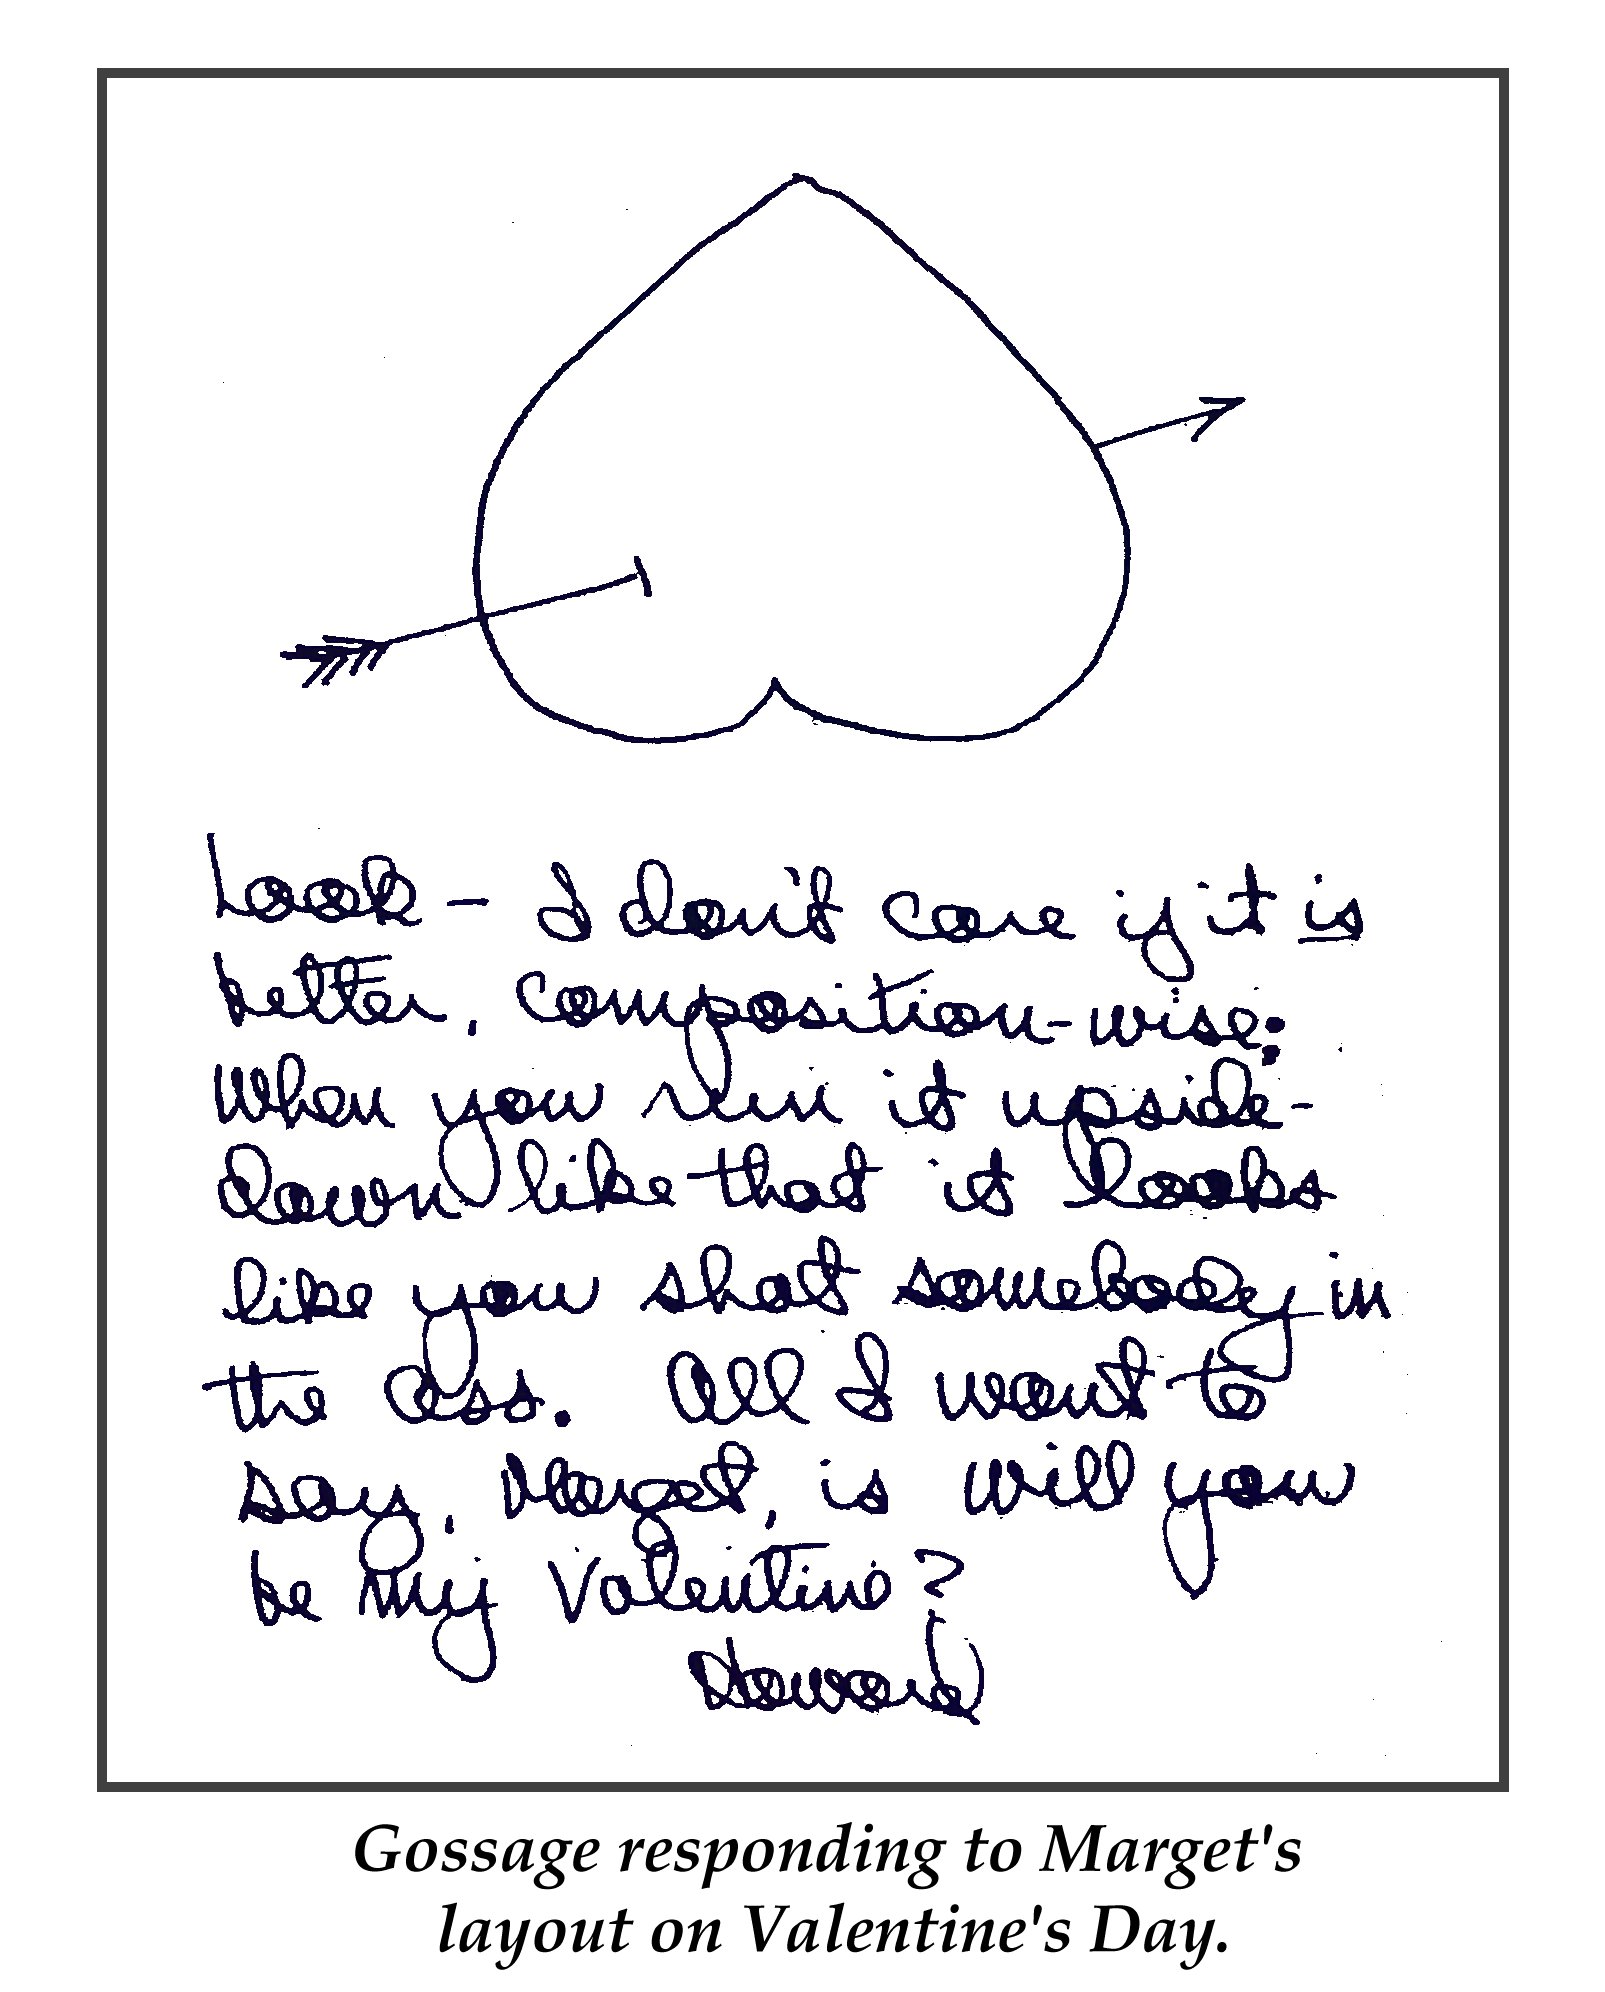 Look – I don't care if it is
better, composition-wise:
When you run it upside-
down like that it looks
like you shot somebody in
the ass. All I want to
say, Marget, is will you
be my Valentine?
Howard
Gossage responding to Marget's
layout on Valentine's Day.